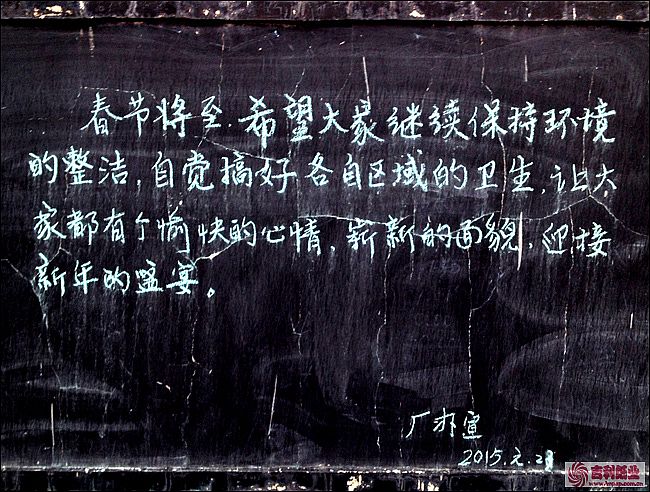 春节将至.希望大家继续保持环境
的整洁,自觉搞好各自区域的卫生,让大
家都有个愉快的心情,崭新的面貌,迎接
新年的盛宴。
厂办宣
2015.元.28
吉利纸业